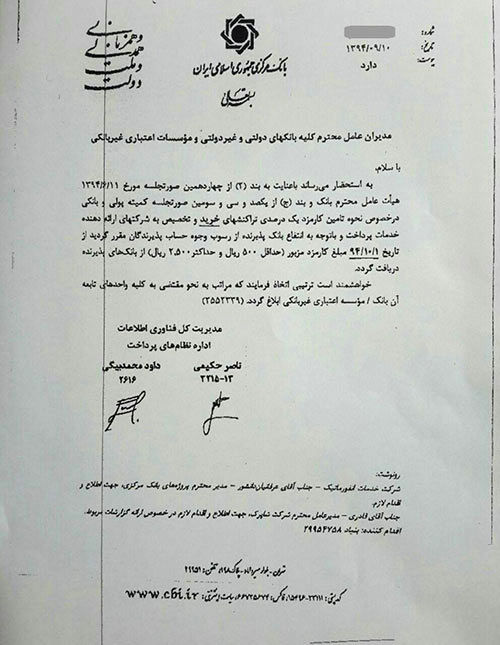 دولت و ملت همدلی و همزبانی
بانک مرکزی جمهوری اسلامی ایران
بسمه تعالی
شماره:
تاریخ: ۱۳۹۴/۰۹/۱۰
پیوست: دارد
مدیران عامل محترم کلیه بانکهای دولتی و غیردولتی و مؤسسات اعتباری غیربانکی
با سلام،
به استحضار می‌رساند باعنایت به بند (۲) از چهاردهمین صورتجلسه مورخ ۱۳۹۴/۶/۱۱
هیأت عامل محترم بانک و بند (ج) از یکصد و سی و سومین صورتجلسه کمیته پولی و بانکی
درخصوص نحوه تامین کارمزد یک درصدی تراکنشهای خرید و تخصیص به شرکتهای ارائه دهنده
خدمات پرداخت و باتوجه به انتفاع بانک پذیرنده از رسوب وجوه حساب پذیرندگان مقرر گردید از
تاریخ ۹۴/۱۰/۱ مبلغ کارمزد مزبور (حداقل ۵۰۰ ریال و حداکثر ۲،۵۰۰ ریال) از بانک‌های پذیرنده
دریافت گردد.
خواهشمند است ترتیبی اتخاذ فرمایند که مراتب به نحو مقتضی به کلیه واحدهای تابعه
آن بانک / مؤسسه اعتباری غیربانکی ابلاغ گردد. (۲۵۵۲۳۳۹)
مدیریت کل فناوری اطلاعات
اداره نظام‌های پرداخت
ناصر حکیمی داود محمدبیگی
۳۲۱۵-۱۳ ۲۶۱۶
رونوشت:
شرکت خدمات انفورماتیک - جناب آقای عرفانیان‌دانشور - مدیر محترم پروژه‌های بانک مرکزی، جهت اطلاع و
اقدام لازم.
جناب آقای قادری - مدیرعامل محترم شرکت شاپرک، جهت اطلاع و اقدام لازم در خصوص ارائه گزارشات مربوط.
اقدام کننده: بنیاد ۲۹۹۵۴۷۵۸
تهران - بلوار میرداماد - پلاک ۱۹۸ تلفن: ۲۹۹۵۱
کدپستی: ۲۳۱۱۱-۱۵۴۹۶ فاکس: ۶۶۷۳۵۶۷۴ سایت اینترنتی: www.cbi.ir